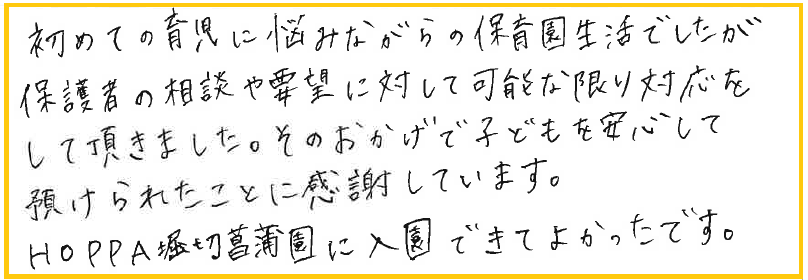 初めての育児に悩みながらの保育園生活でしたが
保護者の相談や要望に対して可能な限り対応を
して頂きました。そのおかげで子どもを安心して
預けられたことに感謝しています。
HOPPA堀切菖蒲園に入園できてよかったです。